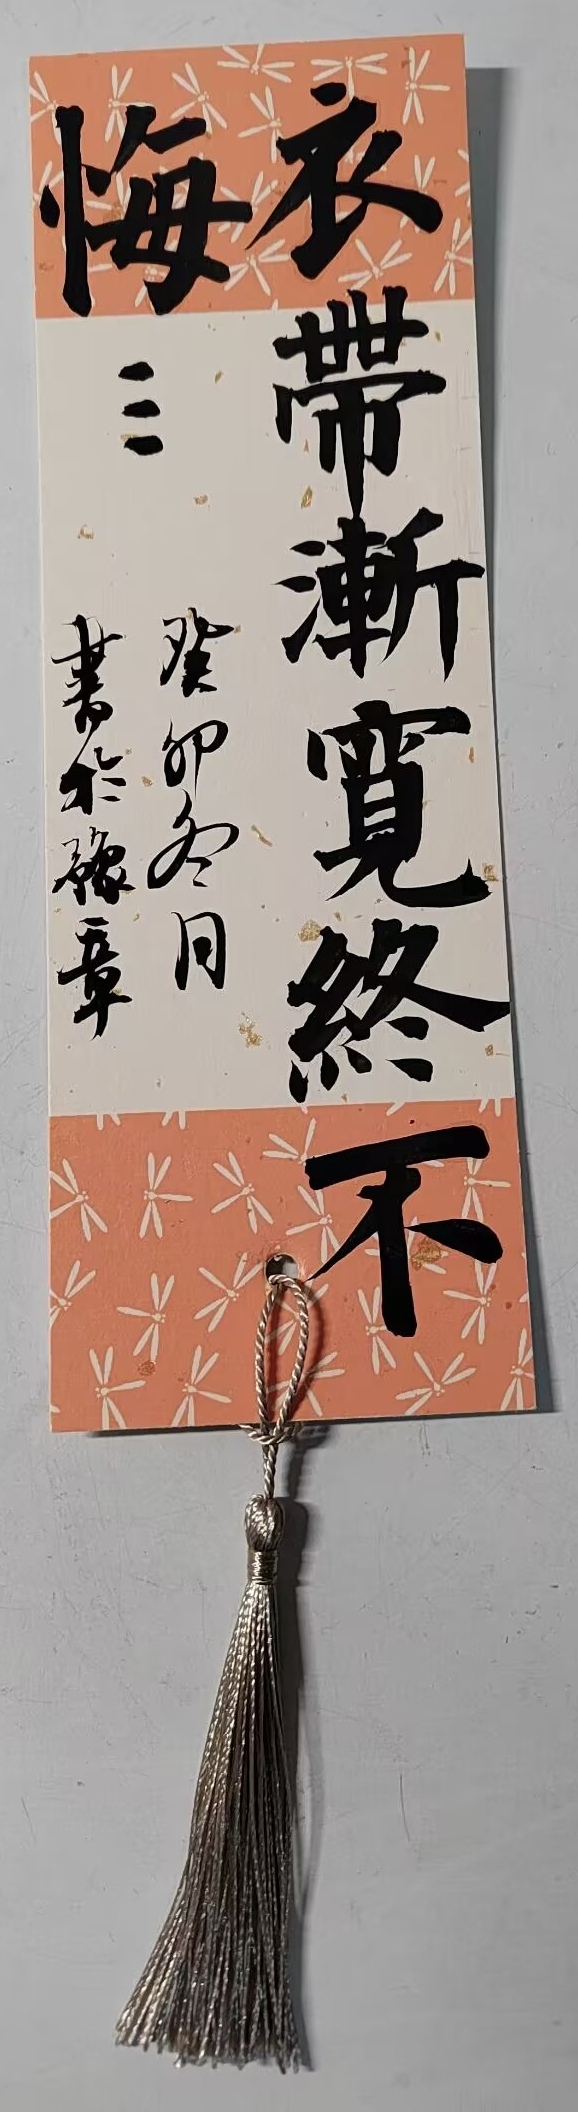 衣帶漸寬終不
悔三
癸卯冬日
書於豫章